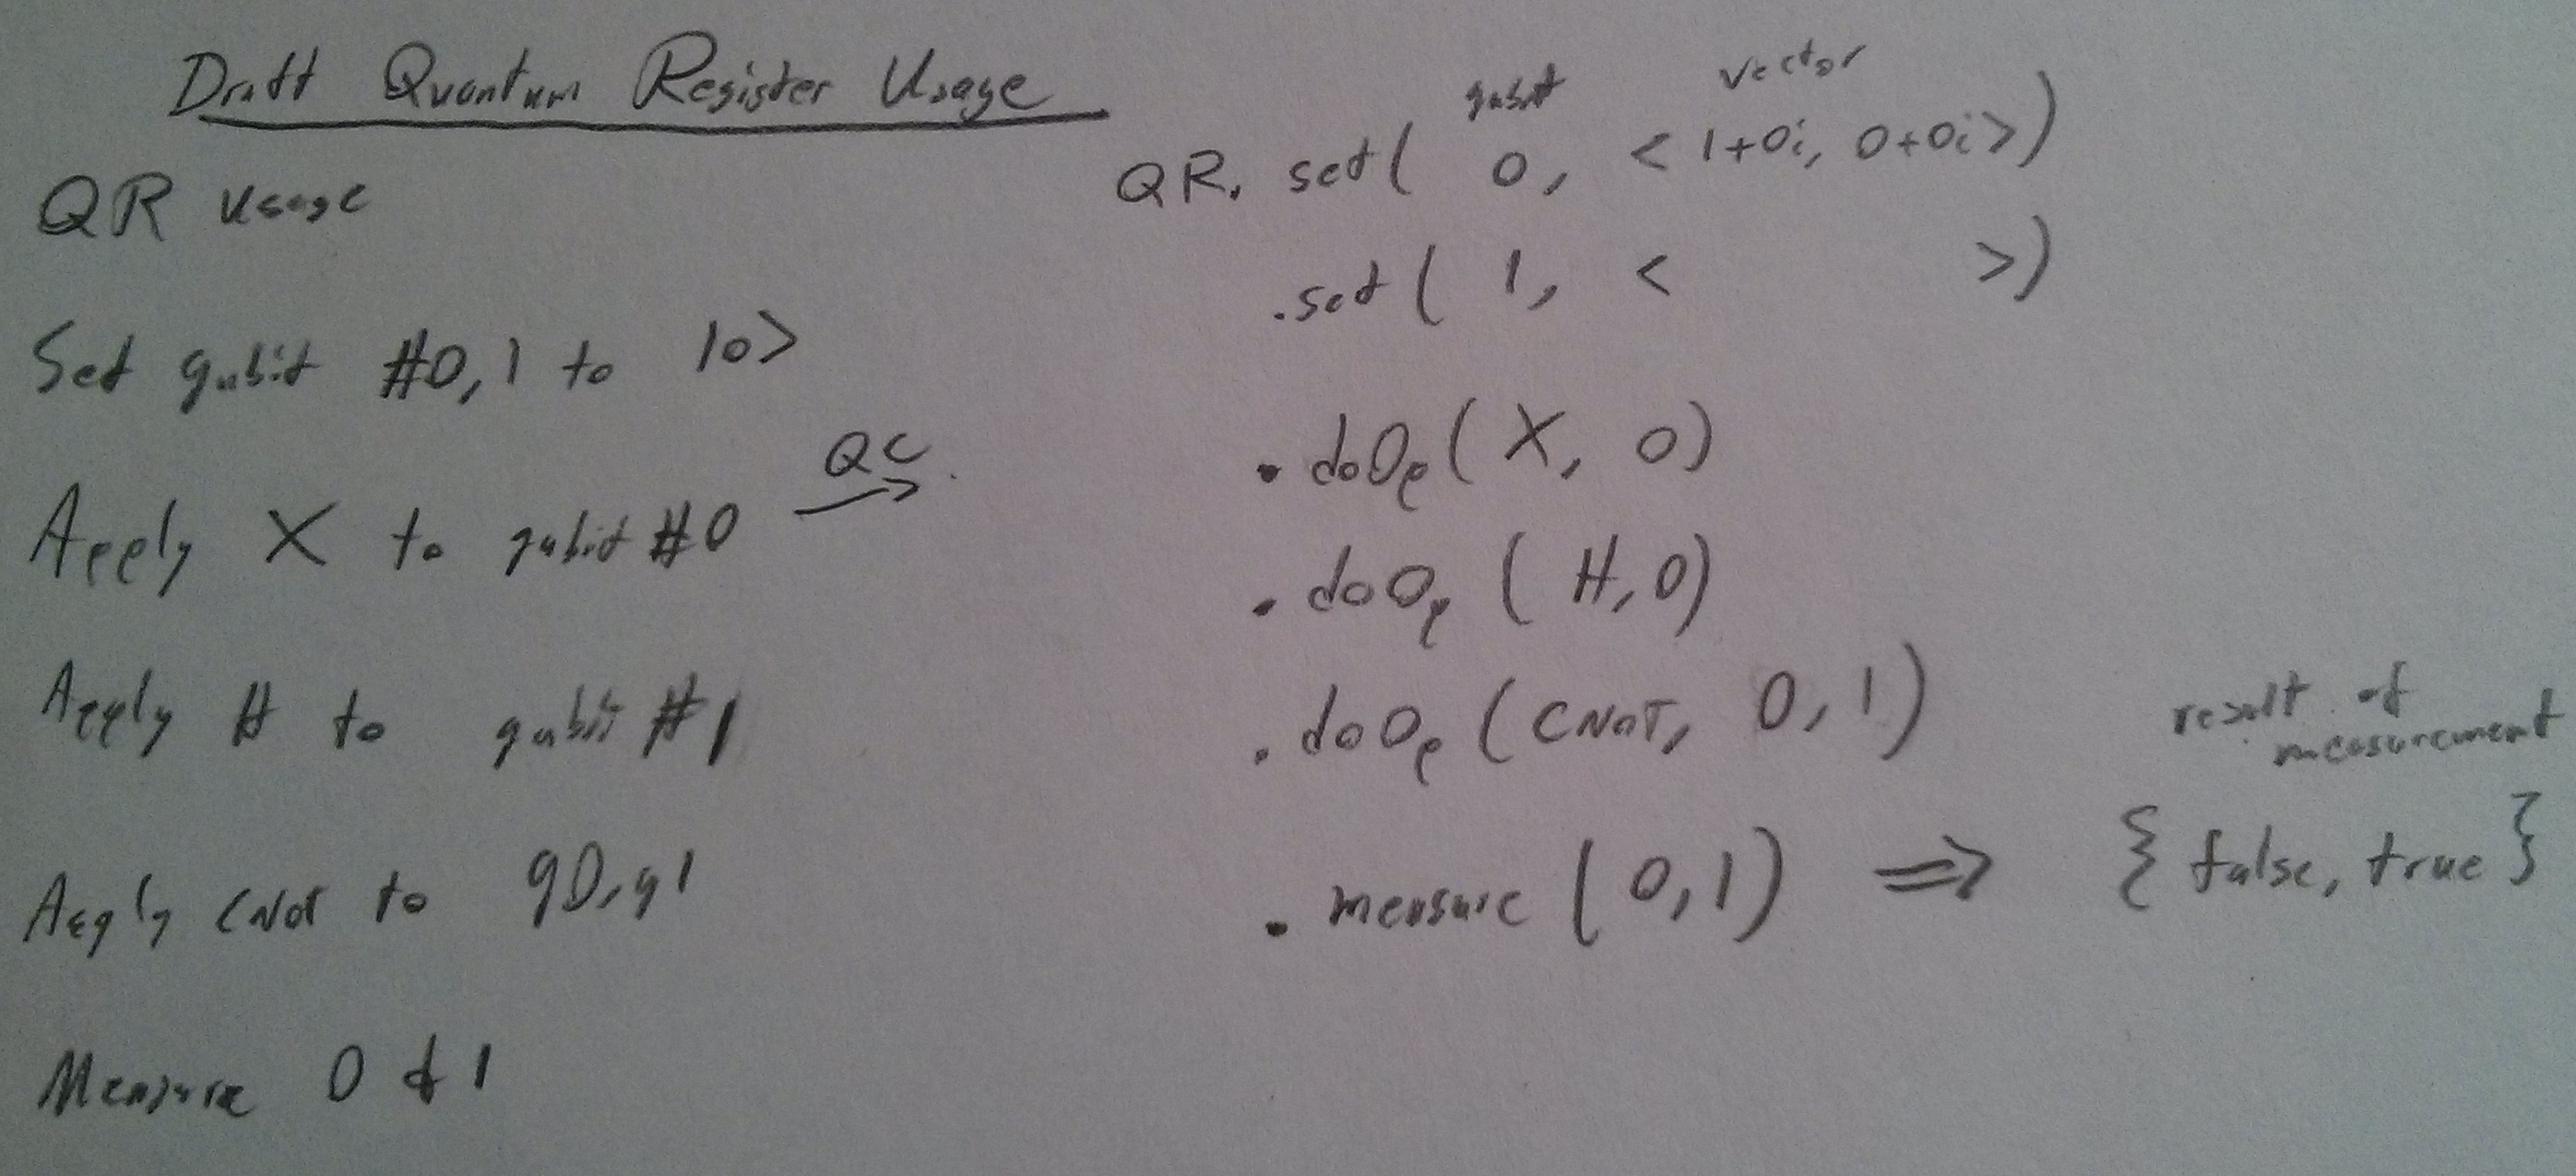 Draft Quantum Register Usage
QR usage
Set qubit #0,1 to |0>
Apply X to qubit #0
QC
Apply H to qubit #1
Apply CNOT to q0,q1
Measure 0 & 1
qubit vector
QR. set( 0, < 1+0i, 0+0i>)
.set( 1, < >)
. doOp( X, 0)
. doOp ( H, 0)
. doOp ( CNOT, 0, 1)
. measure ( 0, 1) => { false, true }
result of
measurement